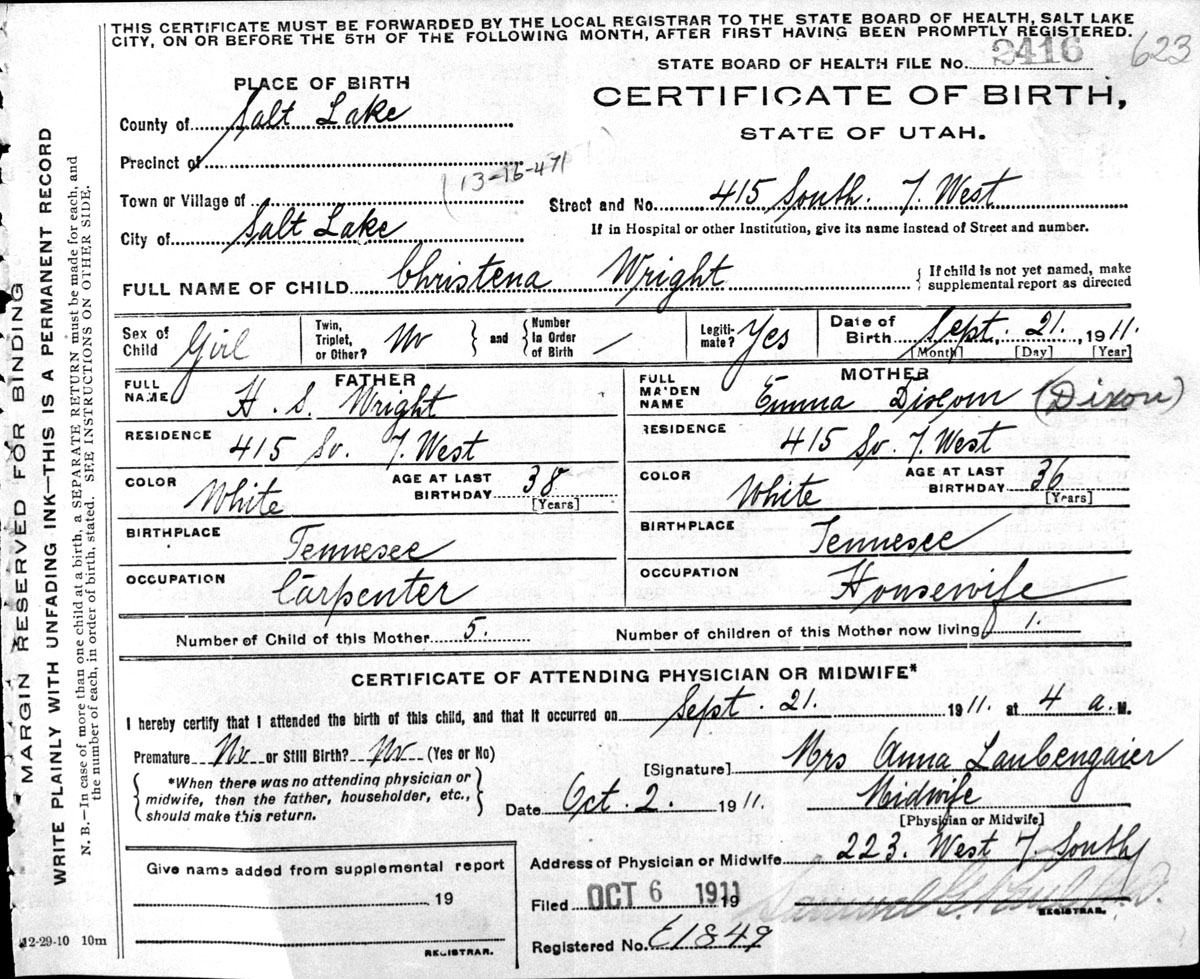 THIS CERTIFICATE MUST BE FORWARDED BY THE LOCAL REGISTRAR TO THE STATE BOARD OF HEALTH, SALT LAKE
CITY, ON OR BEFORE THE 5TH OF THE FOLLOWING MONTH, AFTER FIRST HAVING BEEN PROMPTLY REGISTERED.
STATE BOARD OF HEALTH FILE No. 2416 623
PLACE OF BIRTH
CERTIFICATE OF BIRTH,
STATE OF UTAH.
County of Salt Lake
Precinct of
13-16-471
Town or Village of
Street and No. 415 South. 7. West
City of Salt Lake
If in Hospital or other Institution, give its name instead of Street and number.
FULL NAME OF CHILD Christena Wright
{ If child is not yet named, make supplemental report as directed
Sex of Child Girl
Twin, Triplet, or Other? No } and { Number in Order of Birth /
Legitimate? Yes
Date of Birth Sept. 21. 1911.
[Month] [Day] [Year]
FATHER
FULL NAME H. S. Wright
RESIDENCE 415 So. 7. West
COLOR White AGE AT LAST BIRTHDAY 38 [Years]
BIRTHPLACE Tennesee
OCCUPATION Carpenter
MOTHER
FULL MAIDEN NAME Emma (Dixon)
RESIDENCE 415 So. 7. West
COLOR White AGE AT LAST BIRTHDAY 36 [Years]
BIRTHPLACE Tennesee
OCCUPATION Housewife
Number of Child of this Mother 5. Number of children of this Mother now living 1.
CERTIFICATE OF ATTENDING PHYSICIAN OR MIDWIFE*
I hereby certify that I attended the birth of this child, and that it occurred on Sept. 21. 1911. at 4 a. M.
Premature No or Still Birth? No (Yes or No)
{ *When there was no attending physician or midwife, then the father, householder, etc., should make this return. }
[Signature] Mrs Anna Laubengaier
Midwife
[Physician or Midwife]
Date Oct. 2. 1911.
Address of Physician or Midwife 223. West 7. South
Give name added from supplemental report
19
REGISTRAR.
Filed OCT 6 1911 19
REGISTRAR.
Registered No. E1849
12-29-10 10m
MARGIN RESERVED FOR BINDING
WRITE PLAINLY WITH UNFADING INK—THIS IS A PERMANENT RECORD
N. B.—In case of more than one child at a birth, a SEPARATE RETURN must be made for each, and
the number of each, in order of birth, stated. SEE INSTRUCTIONS ON OTHER SIDE.